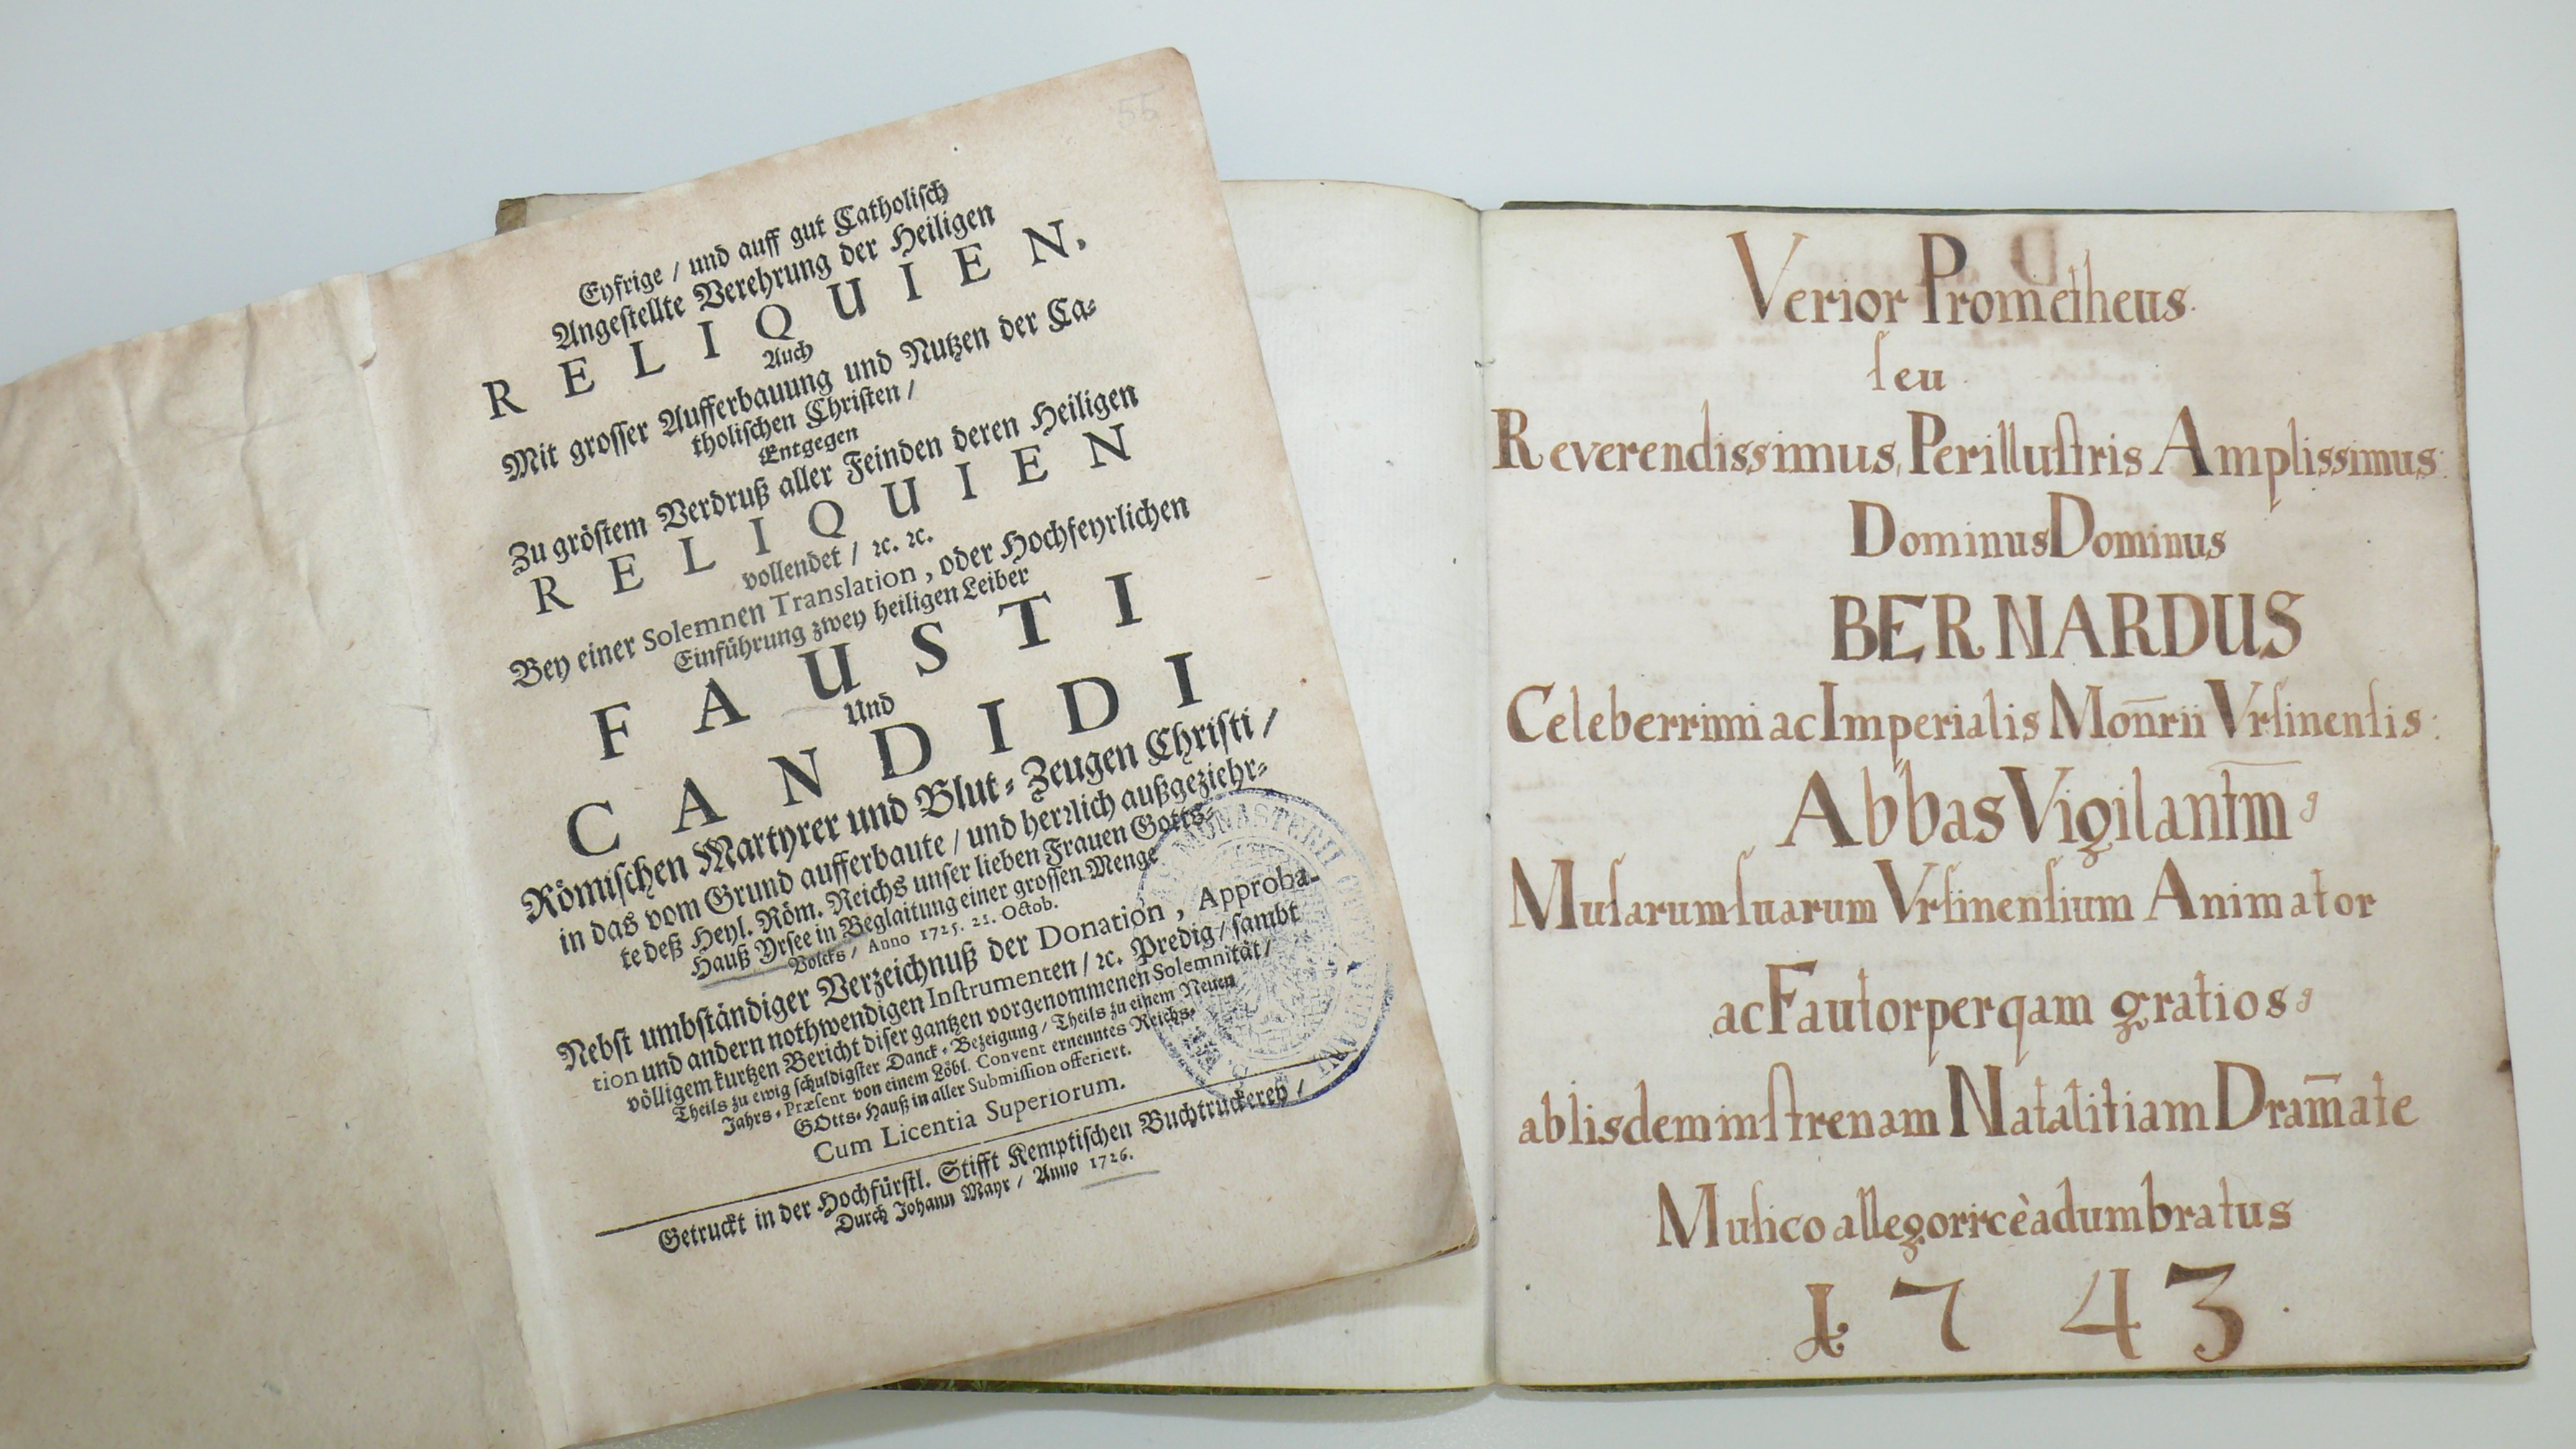 55
Eyfrige / und auff gut Catholisch
Angestellte Verehrung der Heiligen
RELIQUIEN,
Auch
Mit grosser Aufferbauung und Nutzen der Ca-
tholischen Christen /
Entgegen
Zu gröstem Verdruß aller Feinden deren Heiligen
RELIQUIEN
vollendet / ꝛc. ꝛc.
Bey einer Solemnen Translation, oder Hochfeyrlichen
Einführung zwey heiligen Leiber
FAUSTI
Und
CANDIDI
Römischen Martyrer und Blut-Zeugen Christi /
in das vom Grund aufferbaute / und herꝛlich außgeziehr-
te deß Heyl. Röm. Reichs unser lieben Frauen Gotts-
Hauß Yrsee in Beglaitung einer grossen Menge
Volcks / Anno 1725. 21. Octob.
Nebst umbständiger Verzeichnuß der Donation, Approba-
tion und andern nothwendigen Instrumenten / ꝛc. Predig / sambt
völligem kurtzen Bericht diser gantzen vorgenommenen Solemnität /
Theils zu ewig schuldigster Danck-Bezeigung / Theils zu einem Neuen
Jahrs-Præsent von einem Löbl. Convent ernenntes Reichs-
GOtts-Hauß in aller Submission offeriert.
Cum Licentia Superiorum.
Getruckt in der Hochfürstl. Stifft Kemptischen Buchtruckerey /
Durch Johann Mayr / Anno 1726.
MONASTERII
Verior Prometheus.
seu
Reverendissimus, Perillustris Amplissimus
Dominus Dominus
BERNARDUS
Celeberrimi ac Imperialis Mon̅rii Vrsinensis:
Abbas Vigilantm̅9
Musarum suarum Vrsinensium Animator
ac Fautor perqam gratios9
ab Iisdem in strenam Natalitiam Dram̅ate
Musico allegoricè adumbratus
1743.